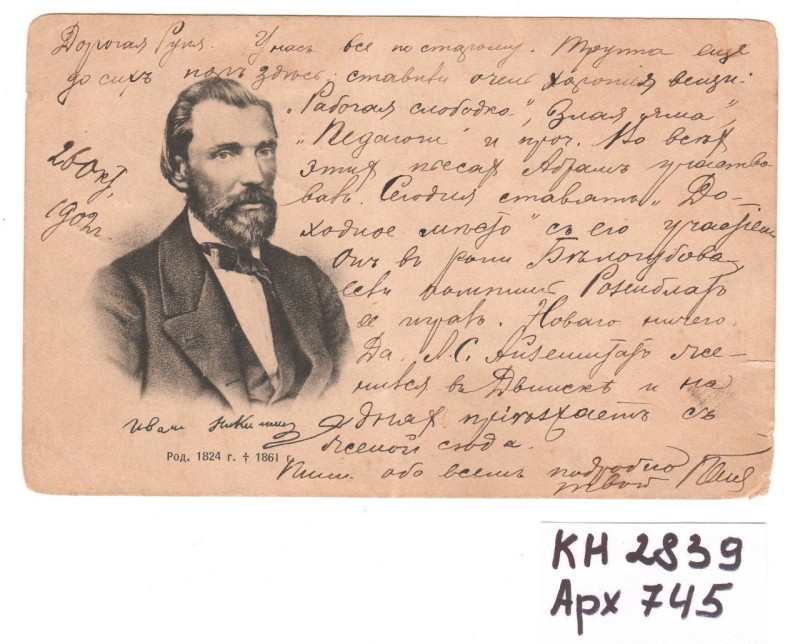 Дорогая Руня. У насъ все по старому. Труппа еще
до сихъ поръ здѣсь; ставили очень хорошія вещи:
„Рабочая слободка", „Злая яма",
„Педагоги" и проч. Во всѣхъ
этихъ пьесахъ Абрамъ участво
валъ. Сегодня ставятъ „До-
ходное мѣсто" съ его участіем
Онъ въ роли Бѣлогубова
если помнишь Розенблатъ
ее игралъ. Новаго ничего.
Да. Л.С. Айзенштатъ же-
нился въ Двинскѣ и на
дняхъ пріѣзжаетъ съ
женой сюда.
Пиши обо всемъ подробно
твой
26 Окт,
1902 г.
Иванъ Никитинъ
Род. 1824 г. † 1861 г.
КН 2839
Арх 745